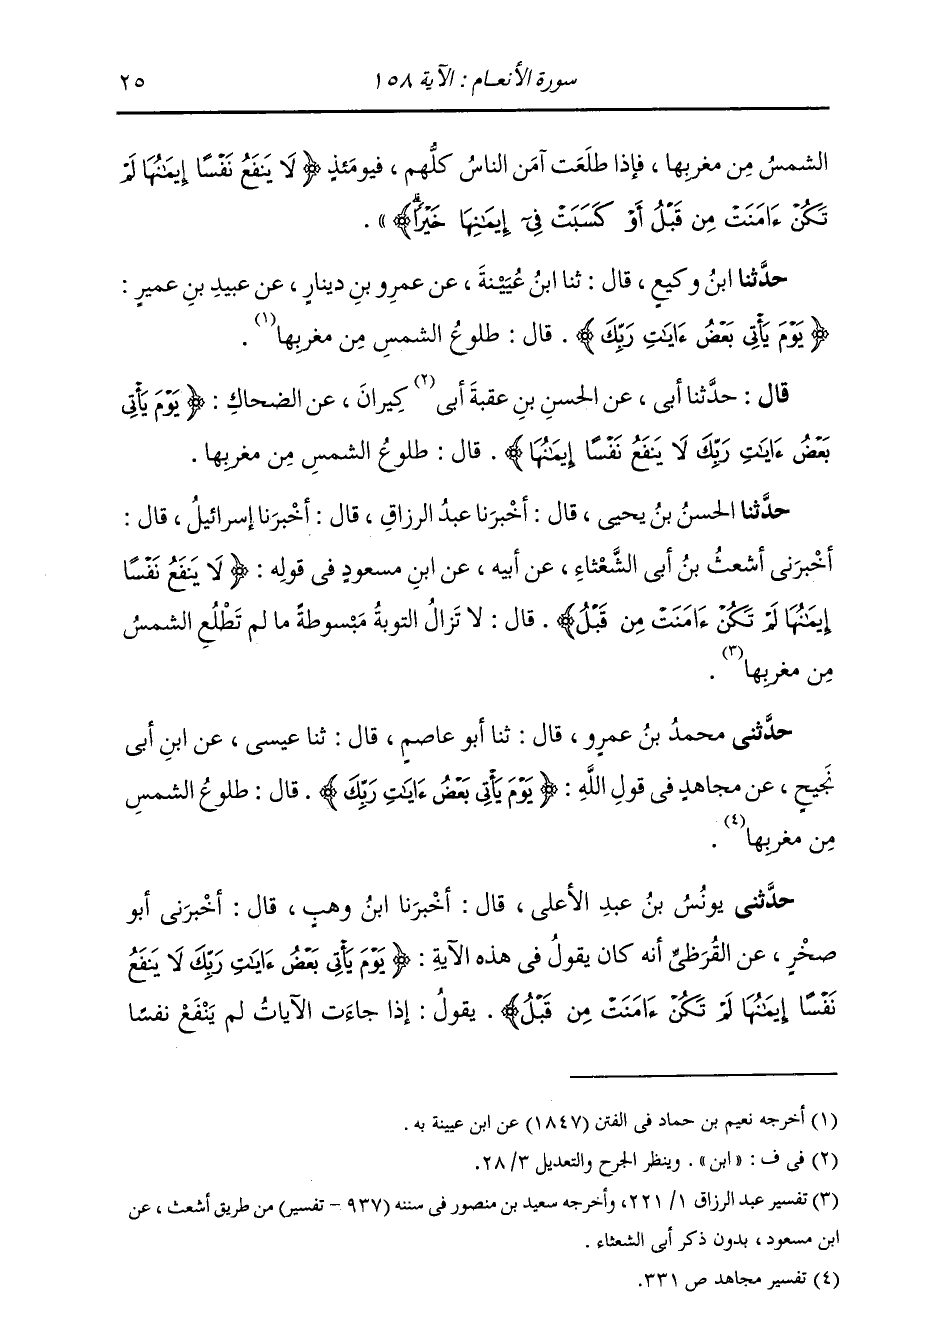 سورة الأنعام : الآية ١٥٨ ٢٥
الشمسُ مِن مغربِها ، فإذا طلَعَت آمَن الناسُ كلُّهم ، فيومَئذٍ ﴿ لَا يَنفَعُ نَفْسًا إِيمَٰنُهَا لَمْ
تَكُنْ ءَامَنَتْ مِن قَبْلُ أَوْ كَسَبَتْ فِىٓ إِيمَٰنِهَا خَيْرًاۗ﴾ » .
حدَّثنا ابنُ وكيعٍ ، قال : ثنا ابنُ عُيَيْنةَ ، عن عمرِو بنِ دينارٍ ، عن عبيدِ بنِ عميرٍ :
﴿ يَوْمَ يَأْتِى بَعْضُ ءَايَٰتِ رَبِّكَ ﴾ . قال : طلوعُ الشمسِ مِن مغربِها(١) .
قال : حدَّثنا أبى ، عن الحسنِ بنِ عقبةَ أبى(٢) كِيرانَ ، عن الضحاكِ : ﴿ يَوْمَ يَأْتِى
بَعْضُ ءَايَٰتِ رَبِّكَ لَا يَنفَعُ نَفْسًا إِيمَٰنُهَا ﴾ . قال : طلوعُ الشمسِ مِن مغربِها .
حدَّثنا الحسنُ بنُ يحيى ، قال : أخْبرَنا عبدُ الرزاقِ ، قال : أخْبرَنا إسرائيلُ ، قال :
أخْبرَنى أشعثُ بنُ أبى الشَّعْثاءِ ، عن أبيه ، عن ابنِ مسعودٍ فى قولِه : ﴿ لَا يَنفَعُ نَفْسًا
إِيمَٰنُهَا لَمْ تَكُنْ ءَامَنَتْ مِن قَبْلُ﴾ . قال : لا تَزالُ التوبةُ مَبْسوطةً ما لم تَطْلُعِ الشمسُ
مِن مغربِها(٣) .
حدَّثنى محمدُ بنُ عمرٍو ، قال : ثنا أبو عاصمٍ ، قال : ثنا عيسى ، عن ابنِ أبى
نَجيحٍ ، عن مجاهدٍ فى قولِ اللَّهِ : ﴿ يَوْمَ يَأْتِى بَعْضُ ءَايَٰتِ رَبِّكَ ﴾ . قال : طلوعُ الشمسِ
مِن مغربِها(٤) .
حدَّثنى يونُسُ بنُ عبدِ الأعلى ، قال : أخْبرَنا ابنُ وهبٍ ، قال : أخبرَنى أبو
صخْرٍ ، عن القُرَظىِّ أنه كان يقولُ فى هذه الآيةِ : ﴿ يَوْمَ يَأْتِى بَعْضُ ءَايَٰتِ رَبِّكَ لَا يَنفَعُ
نَفْسًا إِيمَٰنُهَا لَمْ تَكُنْ ءَامَنَتْ مِن قَبْلُ﴾ . يقولُ : إذا جاءَت الآياتُ لم يَنْفَعْ نفسًا
(١) أخرجه نعيم بن حماد فى الفتن (١٨٤٧) عن ابن عيينة به .
(٢) فى ف : « ابن » . وينظر الجرح والتعديل ٣/ ٢٨.
(٣) تفسير عبد الرزاق ١/ ٢٢١، وأخرجه سعيد بن منصور فى سننه (٩٣٧ - تفسير) من طريق أشعث ، عن
ابن مسعود ، بدون ذكر أبى الشعثاء .
(٤) تفسير مجاهد ص ٣٣١.